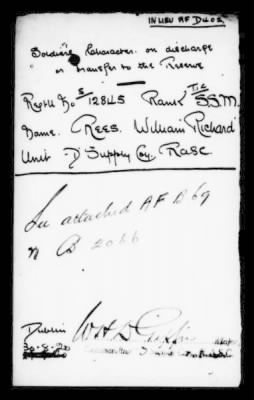 IN LIEU AF D402
Soldiers Character on discharge
or transfer to the Reserve
Regtl No S/12845 Rank T/C S.S.M.
Name. Rees. William Richard
Unit - D Supply Coy. RASC
See attached AF B 69
B 2066
Dublin
30-8-20